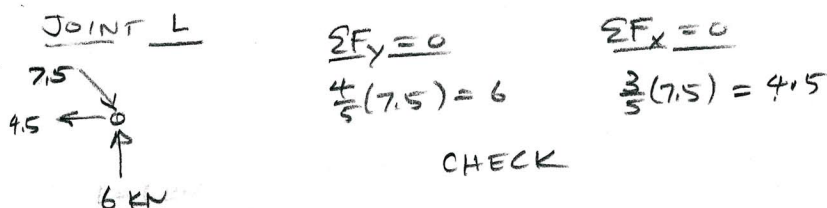 JOINT L
7.5
4.5
6 KN
ΣFy = 0
4/5 (7.5) = 6
ΣFx = 0
3/5 (7.5) = 4.5
CHECK